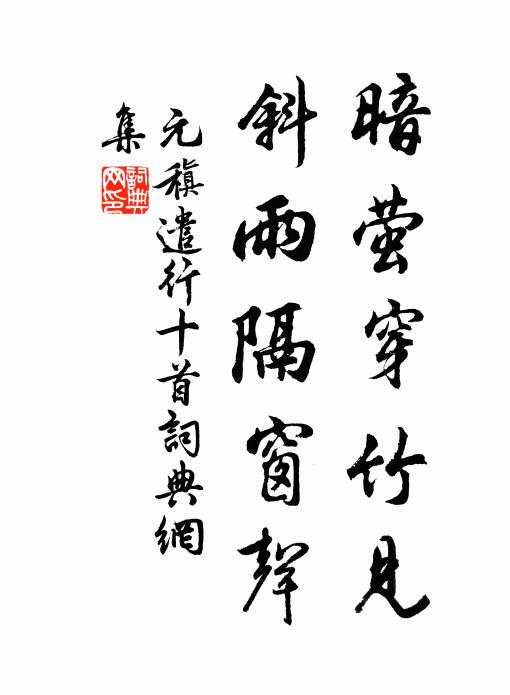 暗萤穿竹見
斜雨隔窗聲
元稹遣行十首詞典網
集
詞典
网印